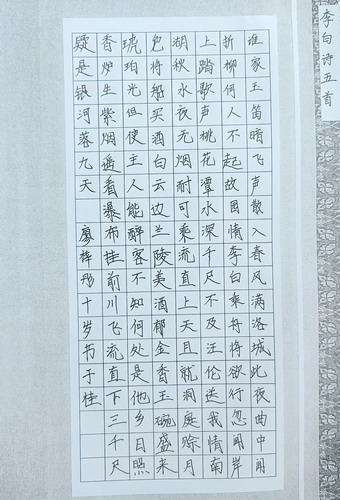 李白诗五首
谁家玉笛暗飞声散入春风满洛城此夜曲中闻
折柳何人不起故园情李白乘舟将欲行忽闻岸
上踏歌声桃花潭水深千尺不及汪伦送我情南
湖秋水夜无烟耐可乘流直上天且就洞庭赊月
色将船买酒白云边兰陵美酒郁金香玉碗盛来
琥珀光但使主人能醉客不知何处是他乡日照
香炉生紫烟遥看瀑布挂前川飞流直下三千尺
疑是银河落九天 廖梓彤十岁书于桂